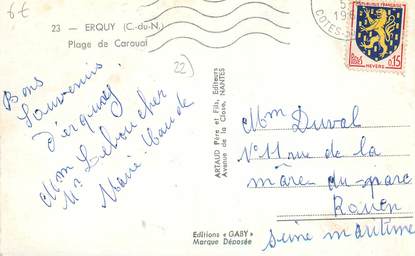 6€
23 — ERQUY (C.-du-N.)
Plage de Caroual
22)
Bons
Souvenirs
d'erquy
Mm Leboucher
Mr
Marie-Maude
ARTAUD Père et Fils, Editeurs
Avenue de la Close, NANTES
Editions « GABY »
Marque Déposée
REPUBLIQUE FRANÇAISE
POSTES
NEVERS
0,15
COTES-
Mm Duval
N° 11 rue de la
mare du parc
Rouen
Seine maritime